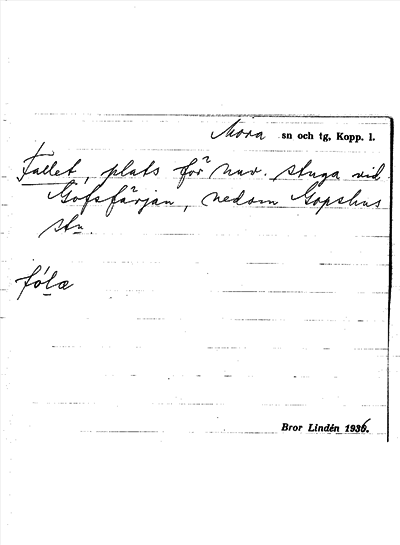 Mora sn och tg, Kopp. l.
Fallet, plats för nuv. stuga vid
Gofsfärjan, nedom Gopshus
stn.
fólæ
Bror Lindén 1936.